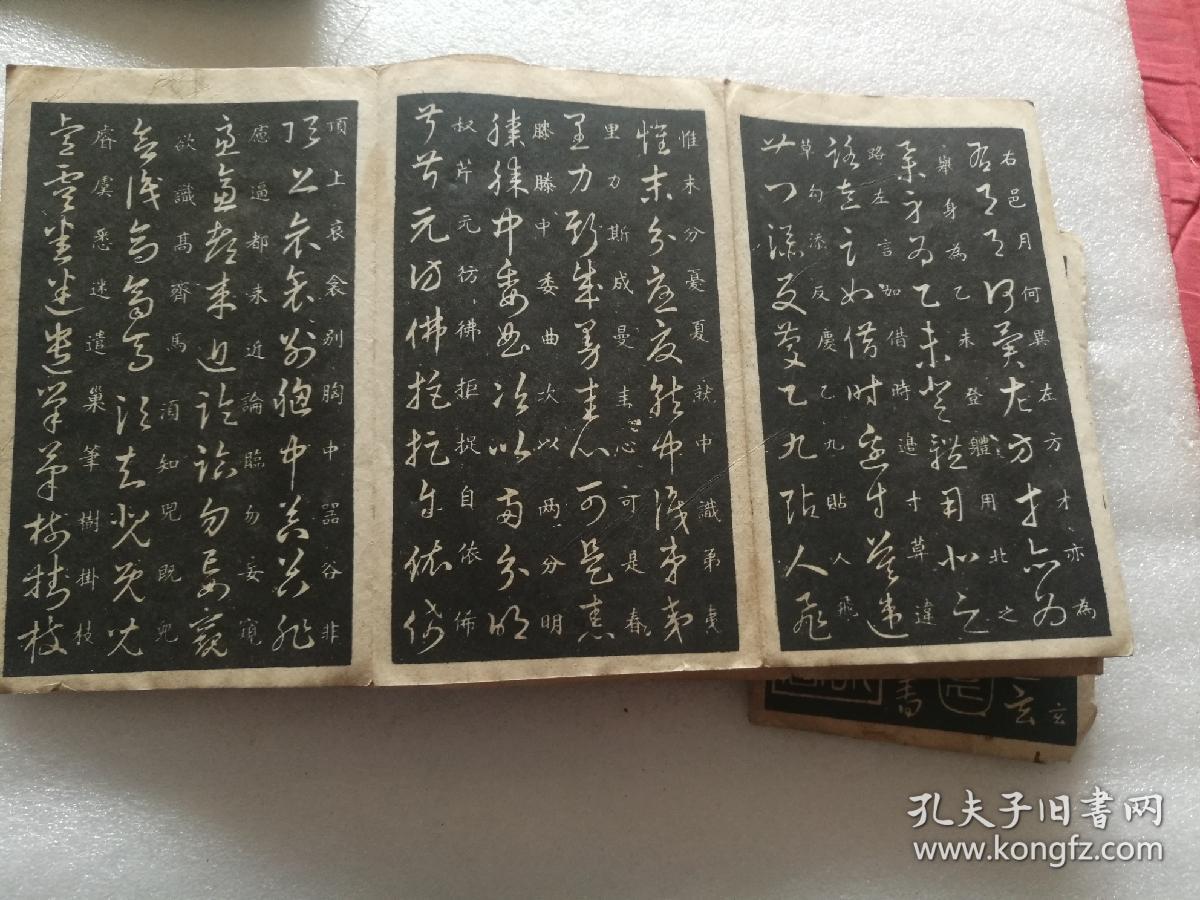 右邑月何異左方才亦為
舉身為乙未登體用北之
路左言如借時邉寸草違
草勾添反慶乙九貼人飛
惟末分憂夏就中識弟夷
里力斯成曼圭心可是春
膝滕中委曲次以两分明
叔芹元彷彿拒捉自依俙
頂上哀衾别胸中器谷非
應逼都来近論臨勿妄窺
欲識高齊馬須知兕既兒
虞悉迷遣巢筆樹掛枝
玄
玄
書
孔夫子旧书网
www.kongfz.com